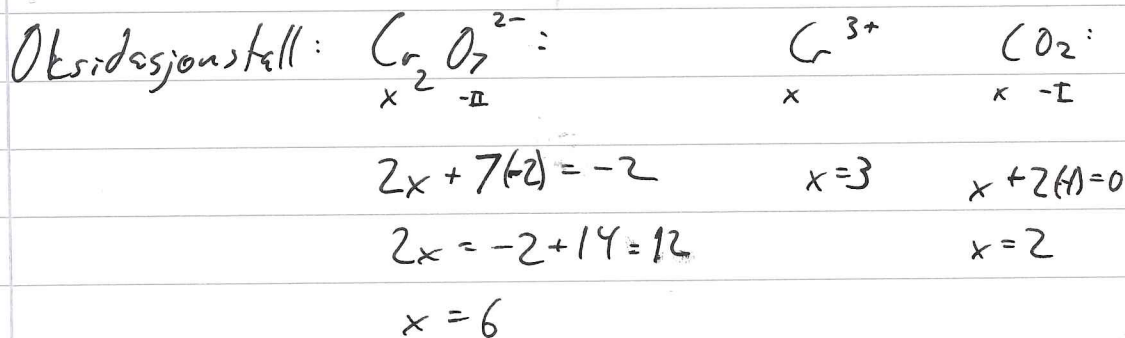 Oksidasjonstall: Cr₂O₇²⁻: Cr³⁺ CO₂:
x -II x x -I
2x + 7(-2) = -2 x=3 x +2(-1)=0
2x = -2+14=12 x=2
x = 6